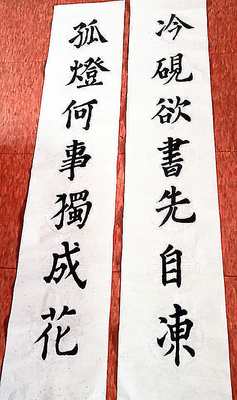 冷硯欲書先自凍
孤燈何事獨成花